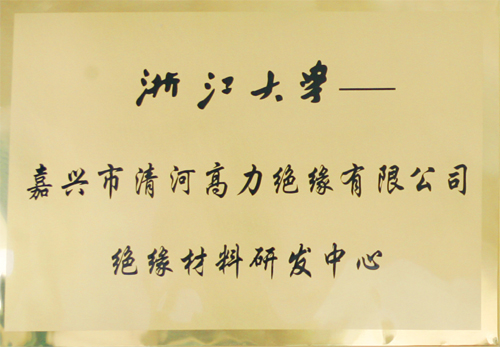 浙江大学——
嘉兴市清河高力绝缘有限公司
绝缘材料研发中心